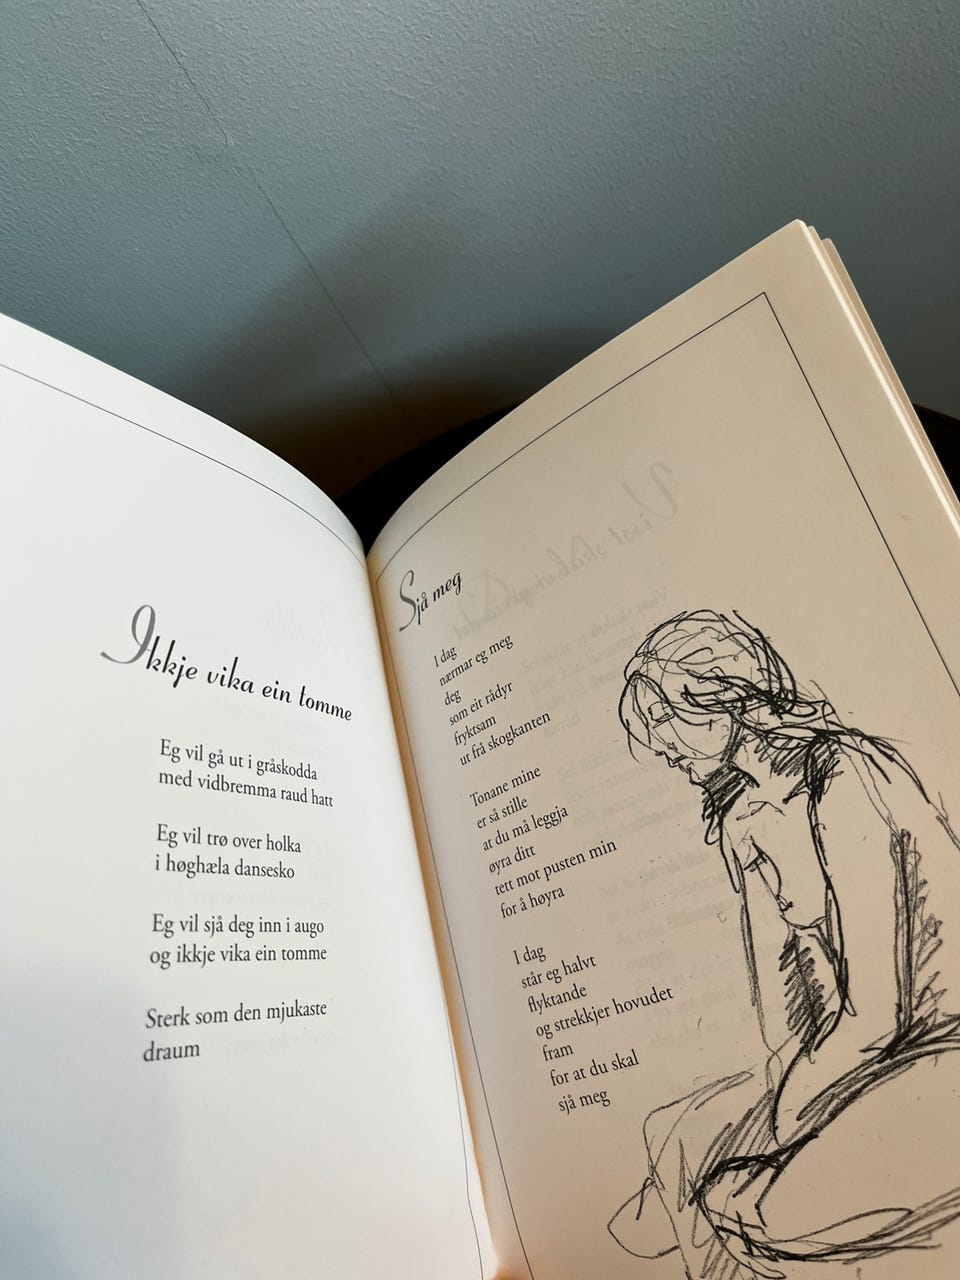 Ikkje vika ein tomme
Eg vil gå ut i gråskodda
med vidbremma raud hatt
Eg vil trø over holka
i høghæla dansesko
Eg vil sjå deg inn i augo
og ikkje vika ein tomme
Sterk som den mjukaste
draum
Sjå meg
I dag
nærmar eg meg
deg
som eit rådyr
fryktsam
ut frå skogkanten
Tonane mine
er så stille
at du må leggja
øyra ditt
tett mot pusten min
for å høyra
I dag
står eg halvt
flyktande
og strekkjer hovudet
fram
for at du skal
sjå meg